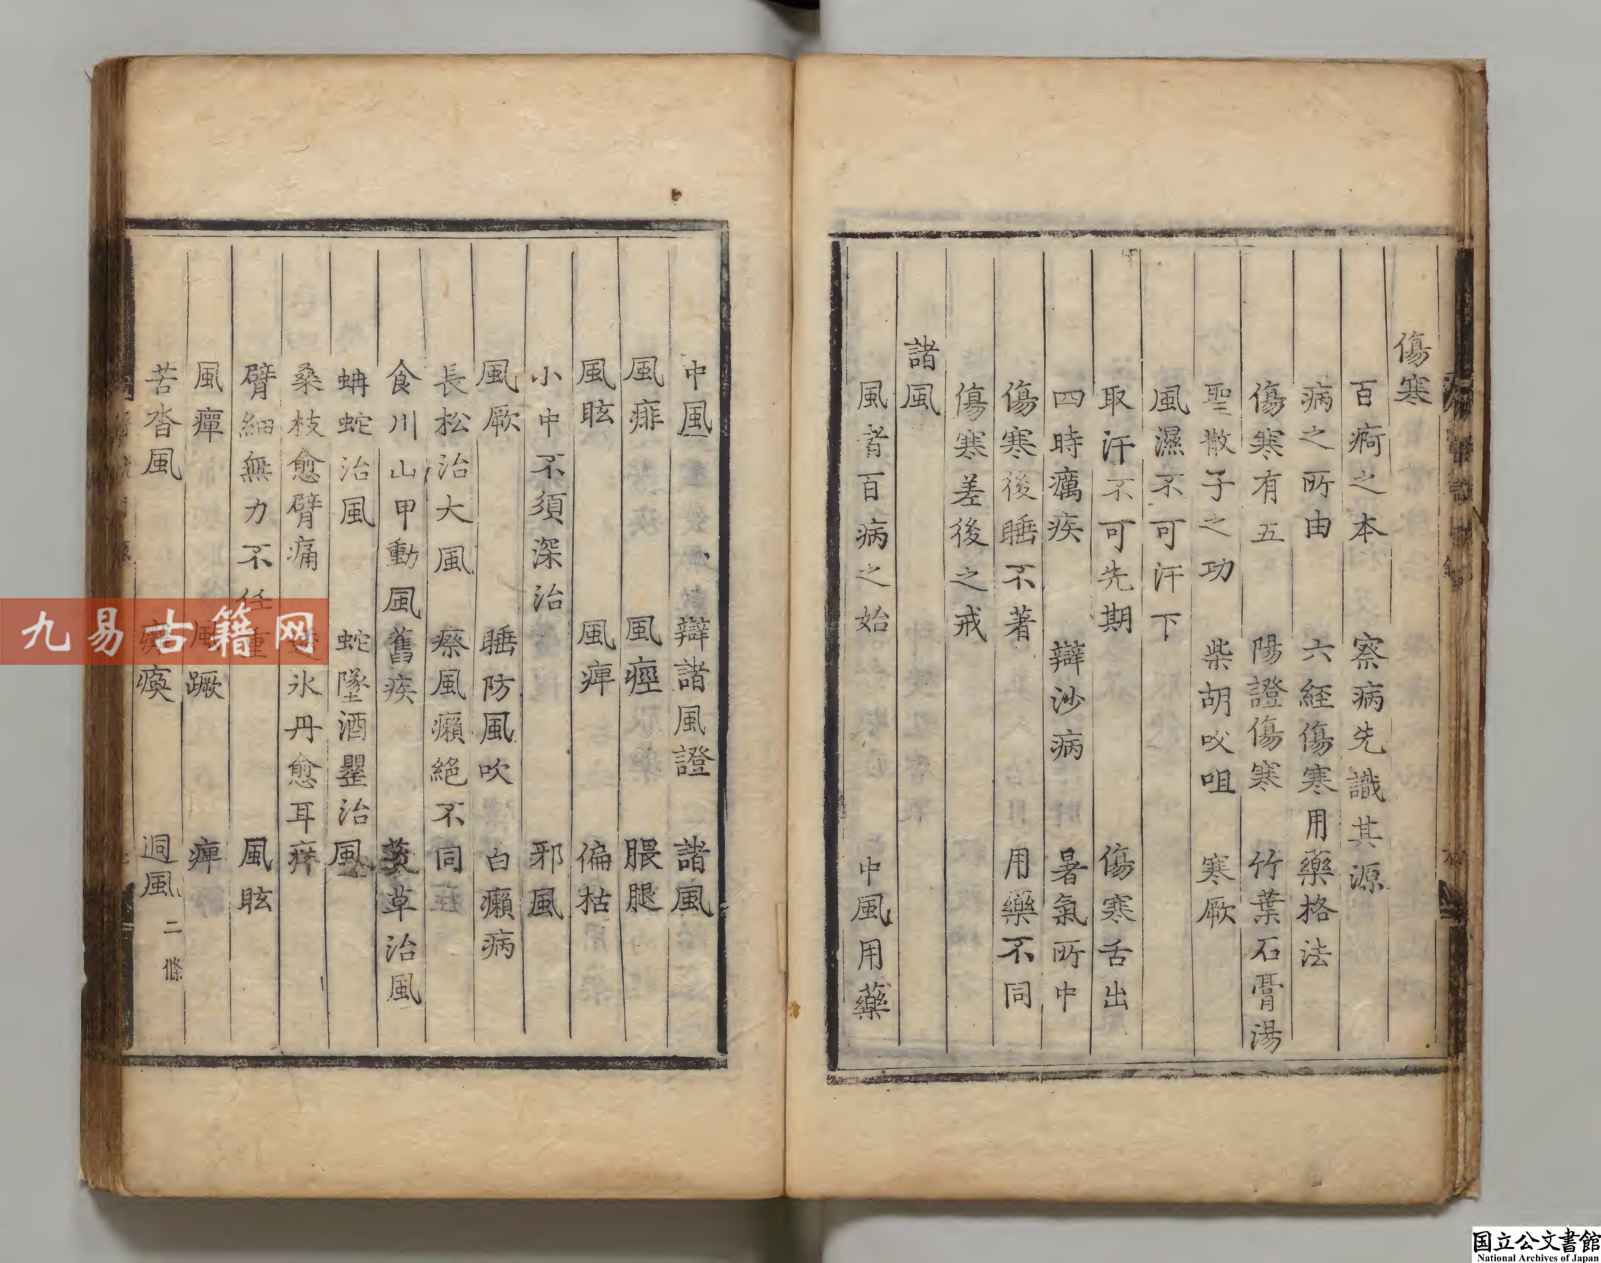 傷寒
百病之本 察病先識其源
病之所由 六経傷寒用藥格法
傷寒有五 陽證傷寒 竹葉石膏湯
聖散子之功 柴胡㕮咀 寒厥
風濕不可汗下
取汗不可先期 傷寒舌出
四時癘疾 辯沙病 暑氣所中
傷寒後睡不著 用藥不同
傷寒差後之戒
諸風
風者百病之始 中風用藥
中風 辯諸風證 諸風
風痱 風痙 腲腿
風眩 風痺 偏枯
小中不須深治 邪風
風厥 睡防風吹 白癩病
長松治大風 瘵風癩絶不同
食川山甲動風舊疾 莢草治風
蚺蛇治風 蛇墜酒罌治風
桑枝愈臂痛 凌氷丹愈耳痒
臂細無力不任重 風眩
風癉 風蹶 痺
苦沓風 瘈瘲 洞風 二條
九易古籍网
国立公文書館
National Archives of Japan